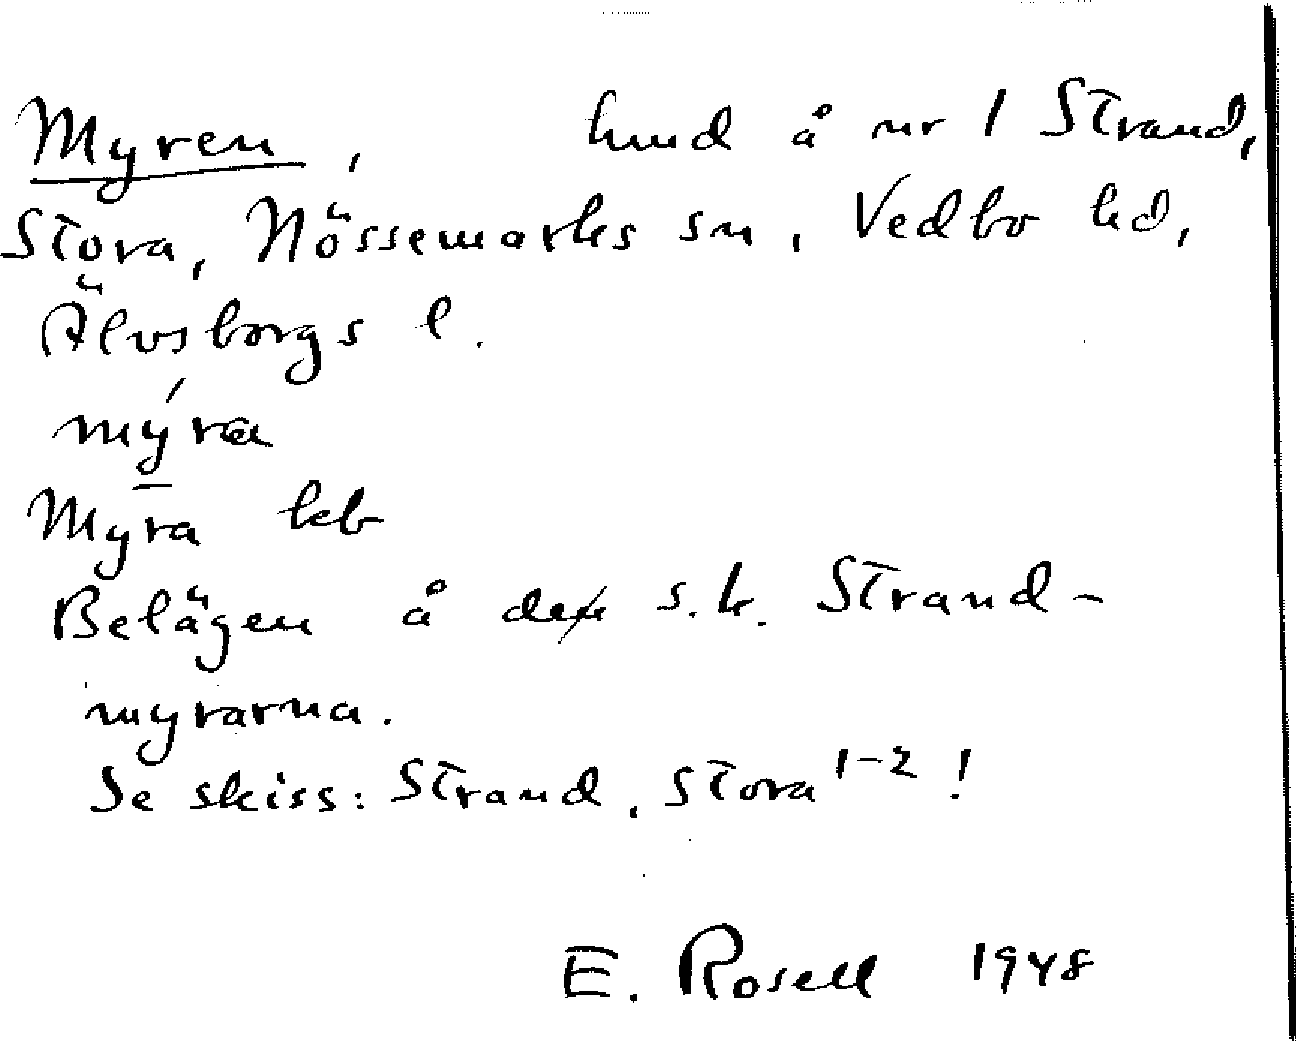 Myren, hmd å nr 1 Strand,
Stora, Nössemarks sn, Vedbo hd,
Älvsborgs l.
mýra
Myra beb
Belägen å de s.k. Strand-
myrarna.
Se skiss: Strand, Stora 1-2!
E. Rosell 1948